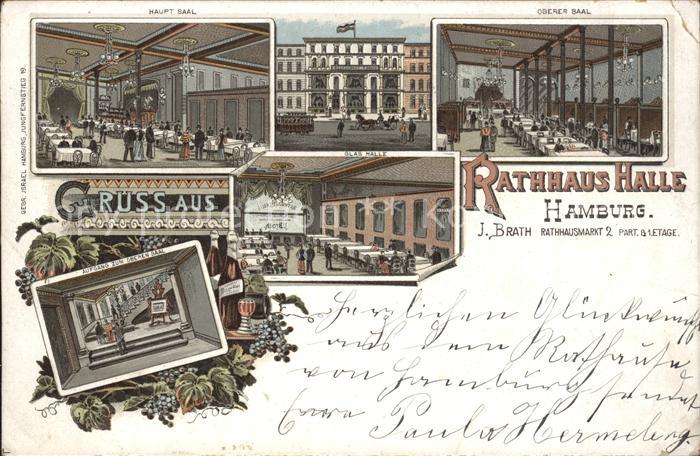 HAUPT SAAL
OBERER SAAL
GEBR. JSRAEL HAMBURG, JUNGFERNSTIEG 19.
GLAS HALLE
GRÜSS AUS
RATHHAUS HALLE
HAMBURG.
J. BRATH RATHHAUSMARKT 2, PART. & 1. ETAGE.
AUFGANG ZUM OBEREN SAAL
Herzlichen Glückwunsch
aus dem Rathause
von Hamburg sendet
Paula Hermeling.